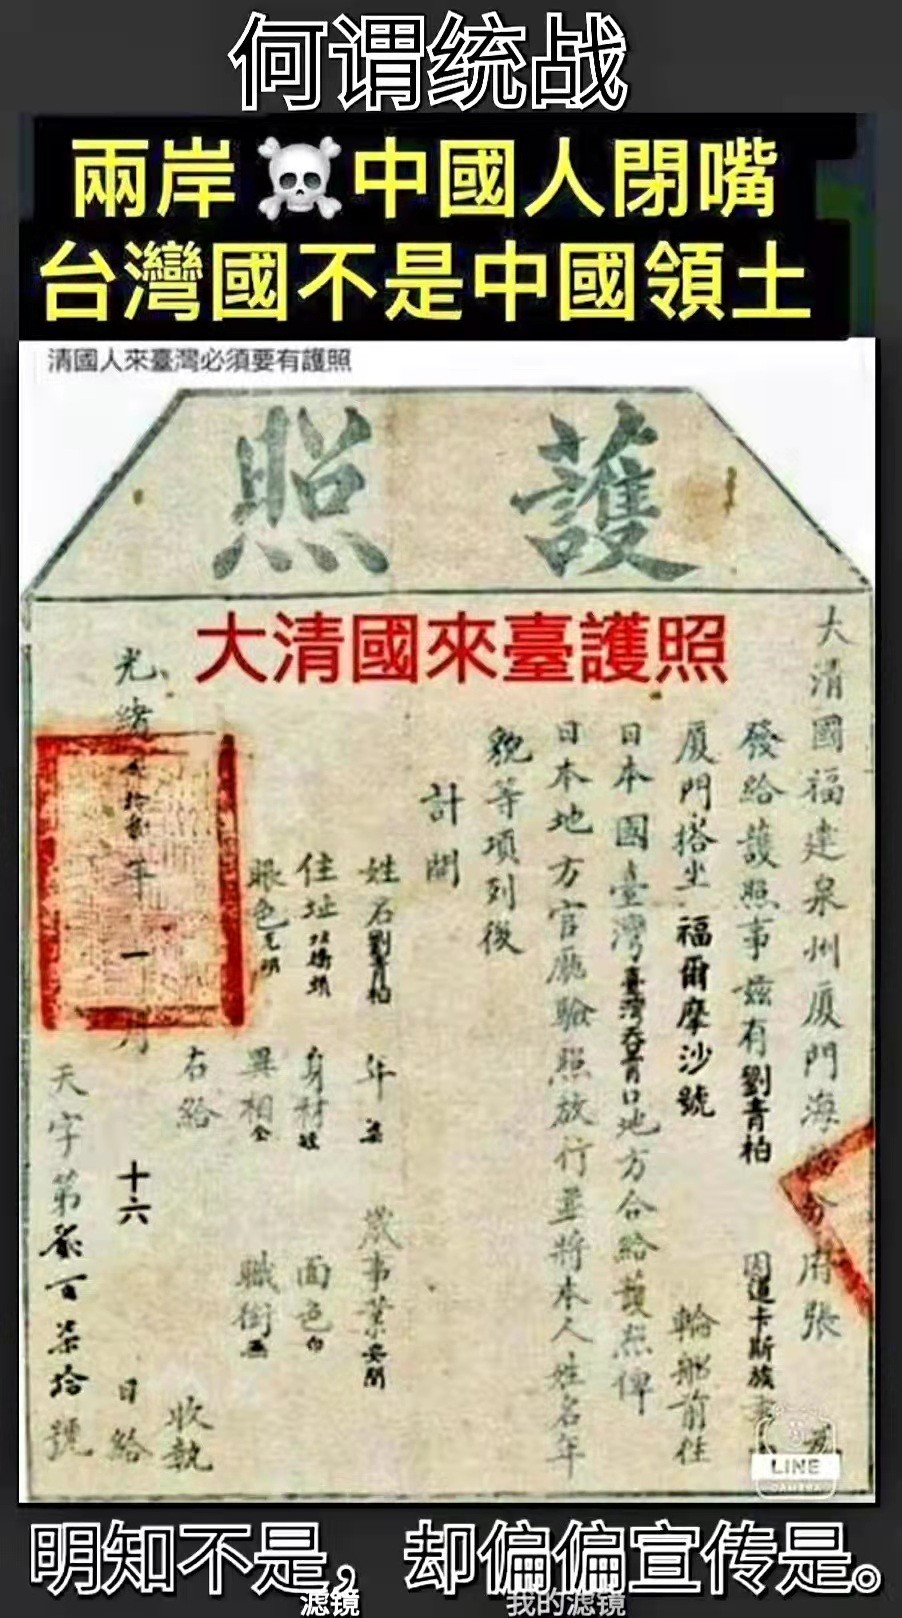 何谓统战
兩岸☠️中國人閉嘴
台灣國不是中國領土
清國人來臺灣必須要有護照
護照
大清國來臺護照
大清國福建泉州厦門海防分府張
發給護照事茲有劉青柏
道卡斯族
厦門搭坐福爾摩沙號輪船前往
日本國臺灣臺灣吞霄口地方合給護照俾
日本地方官廳驗照放行並將本人姓名年
貌等項列後
計開
姓名劉青柏 年 歲事業
住址 身材 面色白
眼色 異相全 職銜
右給 收執
光緒 年一月十六日給
天字第貳百柒拾號
LINE
CAMERA
明知不是，却偏偏宣传是。
滤镜 我的滤镜